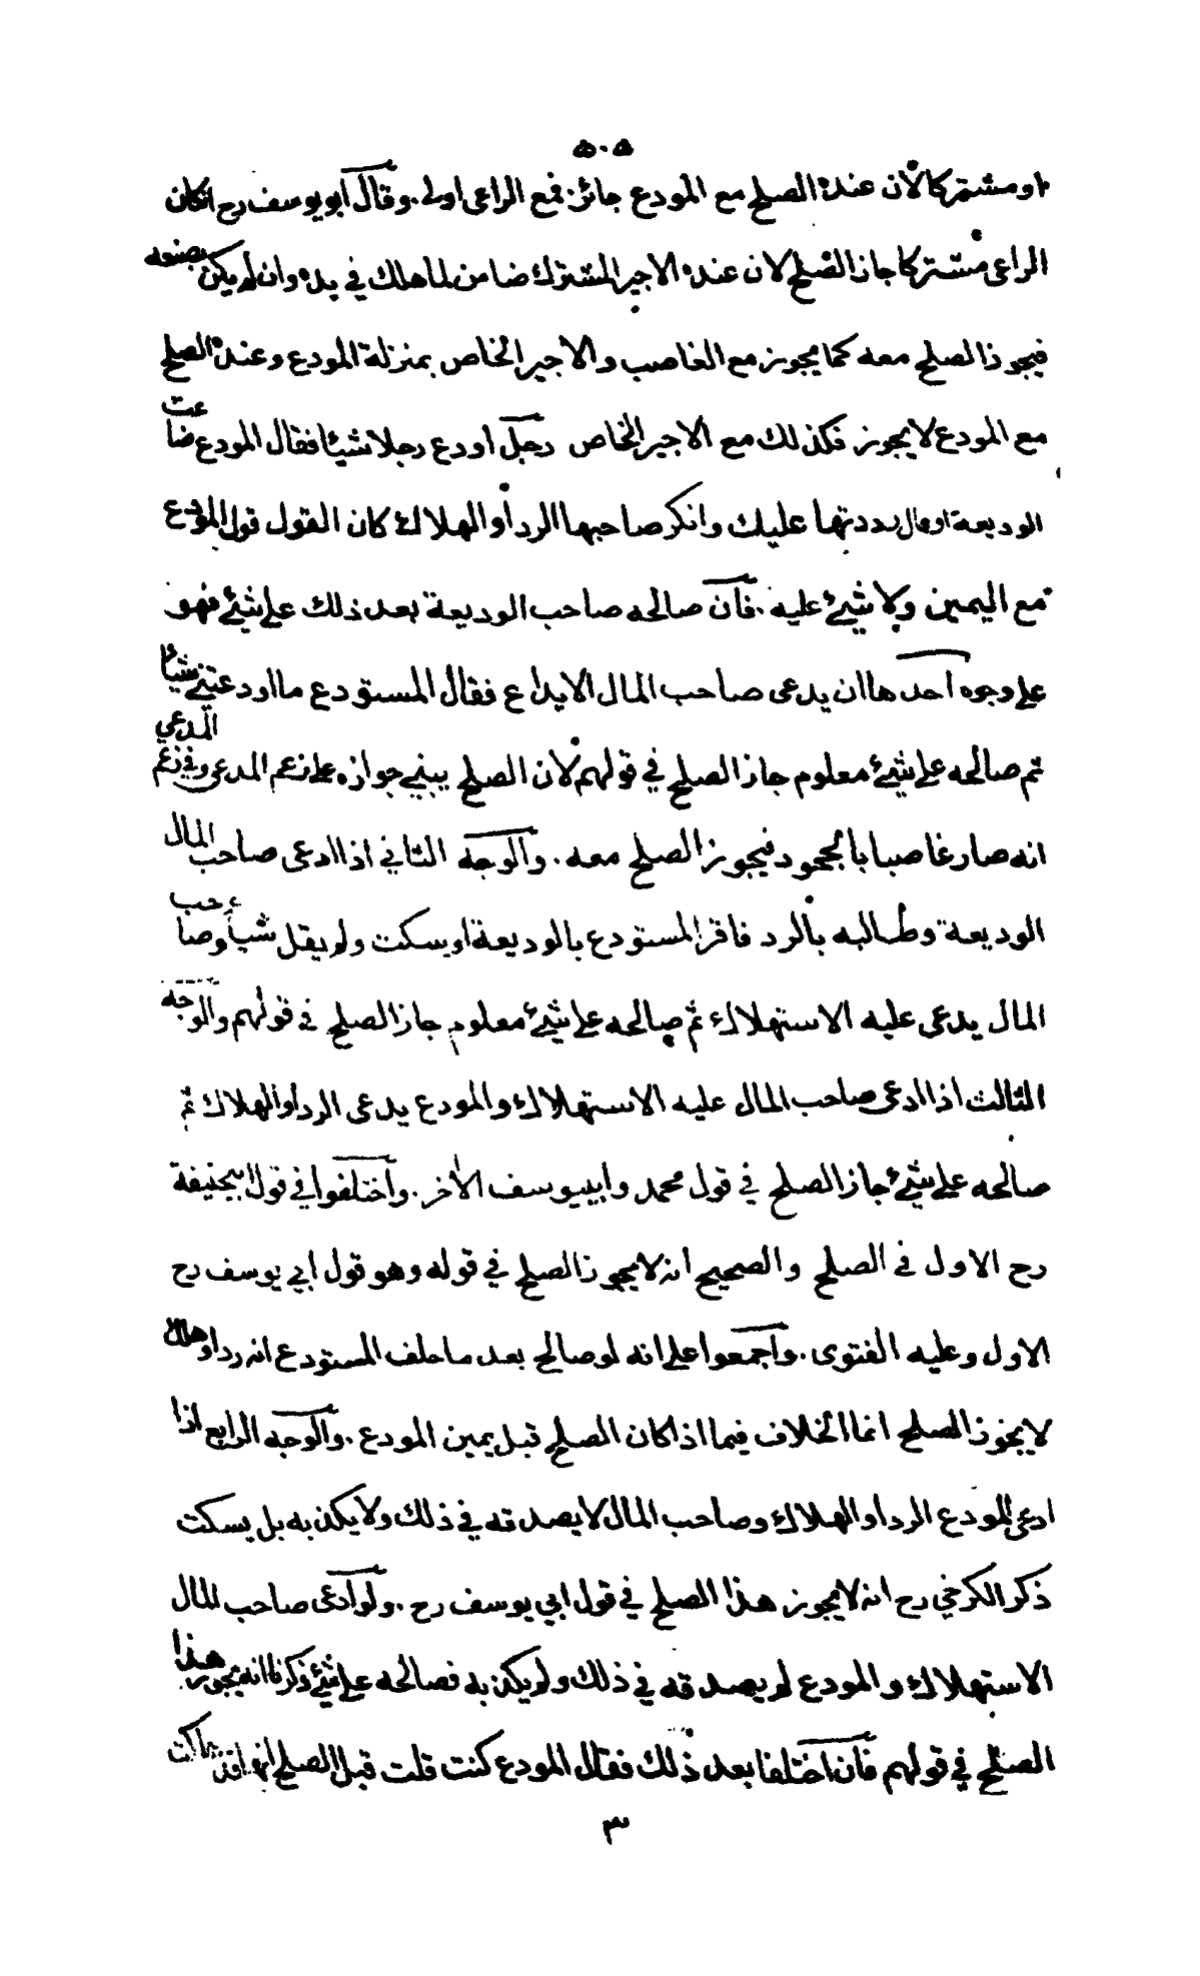 ٥٠٥
او مشتركا لان عنده الصلح مع المودع جائز فمع الراعى اولى . وقال ابو يوسف رح انكان
الراعى مشتركا جاز الصلح لان عنده الاجير المشترك ضامن لما هلك في يده وان لم يكن بصنعه
فيجوز الصلح معه كما يجوز مع الغاصب والاجير الخاص بمنزلة المودع وعنده الصلح
مع المودع لا يجوز فكذلك مع الاجير الخاص رجل اودع رجلا شيئا فقال المودع ضاعت
الوديعة او قال رددتها عليك وانكر صاحبها الرد او الهلاك كان القول قول المودع
مع اليمين ولا شيئ عليه . فان صالحه صاحب الوديعة بعد ذلك على شيئ فهو
على وجوه احدها ان يدعى صاحب المال الايداع فقال المستودع ما اودعتني شيأ
ثم صالحه على شيئ معلوم جاز الصلح في قولهم لان الصلح يبنى جوازه على زعم المدعى وفي زعم المدعي
انه صار غاصبا بالجحود فيجوز الصلح معه . والوجه الثاني اذا ادعى صاحب المال
الوديعة وطالبه بالرد فاقر المستودع بالوديعة او يسكت ولم يقل شيأ وصاحب
المال يدعى عليه الاستهلاك ثم صالحه على شيئ معلوم جاز الصلح في قولهم والوجه
الثالث اذا ادعى صاحب المال عليه الاستهلاك والمودع يدعى الرد او الهلاك ثم
صالحه على شيئ جاز الصلح في قول محمد وابييوسف الأخر . واختلفوا في قول ابيحنيفة
رح الاول في الصلح والصحيح انه لا يجوز الصلح في قوله وهو قول ابي يوسف رح
الاول وعليه الفتوى . واجمعوا على انه لو صالح بعد ما حلف المستودع انه رد او هلك
لا يجوز الصلح انما الخلاف فيما اذا كان الصلح قبل يمين المودع . والوجه الرابع اذا
ادعى المودع الرد او الهلاك وصاحب المال لا يصدقه في ذلك ولا يكذبه بل يسكت
ذكر الكرخي رح انه لا يجوز هذا الصلح في قول ابي يوسف رح . ولو ادعى صاحب المال
الاستهلاك والمودع لم يصدقه في ذلك ولم يكذبه فصالحه على شيئ ذكرنا انه يجوز هذا
الصلح في قولهم فان اختلفا بعد ذلك فقال المودع كنت قلت قبل الصلح انها
٣